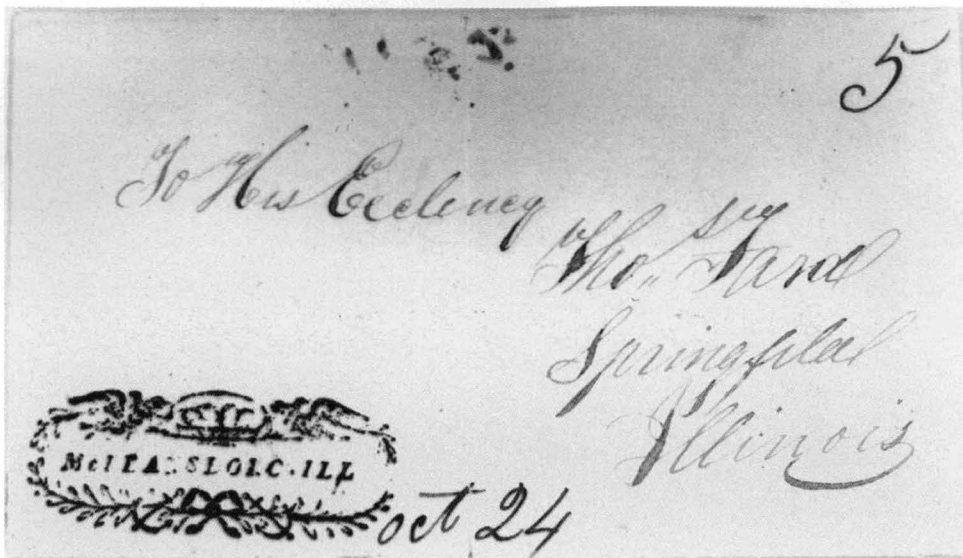 5
To His Eccelency
Tho,, Ford
Springfild
Illinois
McLEANSBORO·ILL
oct 24